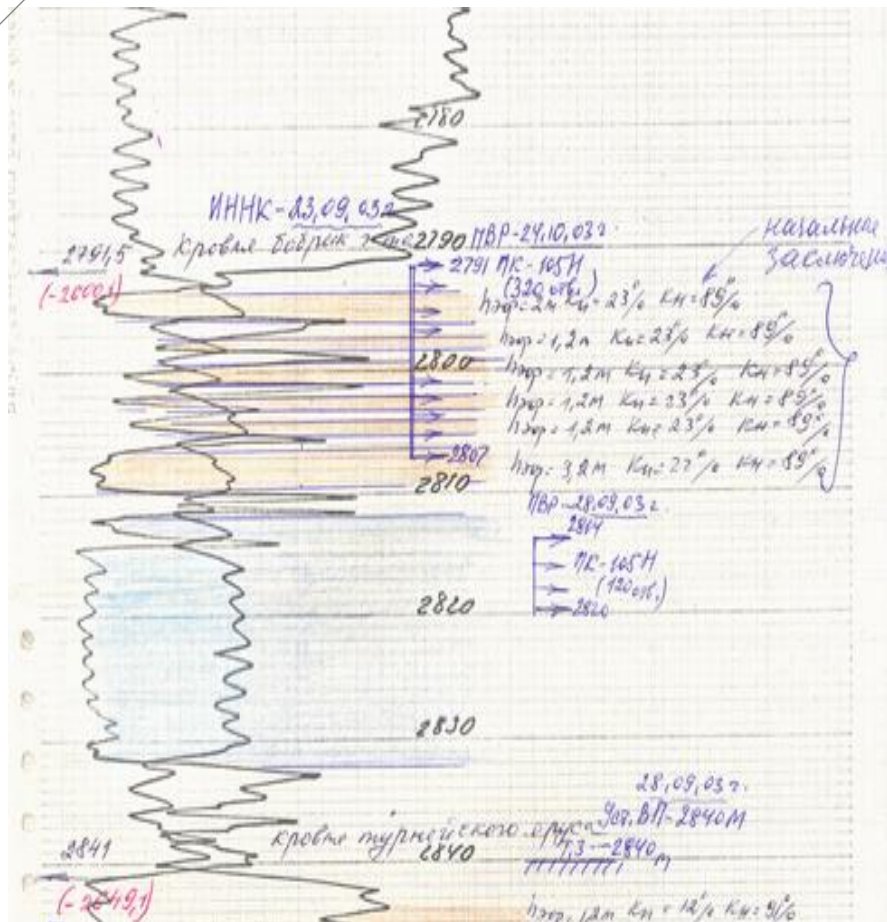 2780
ИННК-23,09,03г
кровля бобрик г-та 2790 ПВР-24,10,03г.
начальное
2791,5
2791 ПК-105Н
(320 отв.)
hэф=2м Кп=23% Кн=89%
hэф=1,2м Кп=23% Кн=89%
2800
hэф=1,2м Кп=23% Кн=89%
hэф=1,2м Кп=23% Кн=89%
hэф=1,2м Кп=23% Кн=89%
2807
hэф=3,2м Кп=22% Кн=89%
2810
ПВР-28,09,03г.
2814
ПК-105Н
(120 отв.)
2820
2820
2830
28,09,03г.
Уст.ВП-2840м
кровля турнейского яруса
Т,З-2840м
2841
2840
(-2649,1)
hэф=1,2м Кп=12% Кн=90%